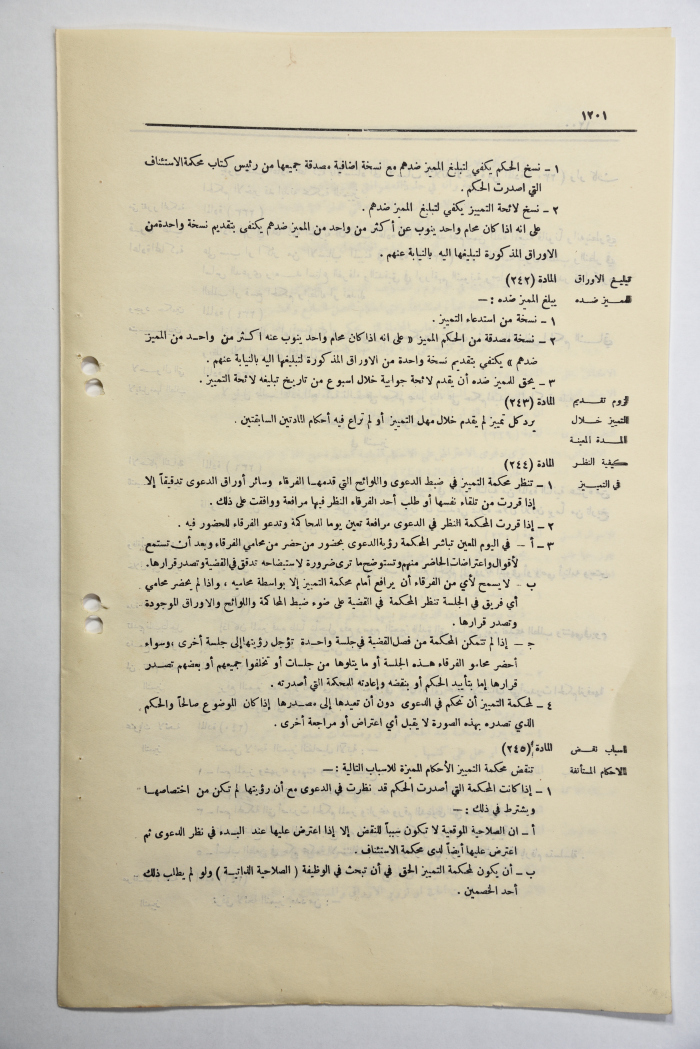 ١٢٠١
١ - نسخ الحكم يكفي لتبليغ المميز ضدهم مع نسخة اضافية مصدقة جميعها من رئيس كتاب محكمة الاستئناف
التي اصدرت الحكم .
٢ - نسخ لائحة التمييز يكفي لتبليغ المميز ضدهم .
على انه اذا كان محام واحد ينوب عن أكثر من واحد من المميز ضدهم يكتفى بتقديم نسخة واحدة من
الاوراق المذكورة لتبليغها اليه بالنيابة عنهم .
تبليغ الاوراق المادة (٢٤٢)
للمميز ضده يبلغ المميز ضده : —
١ - نسخة من استدعاء التمييز .
٢ - نسخة مصدقة من الحكم المميز « على انه اذا كان محام واحد ينوب عنه أكثر من واحد من المميز
ضدهم » يكتفي بتقديم نسخة واحدة من الاوراق المذكورة لتبليغها اليه بالنيابة عنهم .
٣ - يحق للمميز ضده أن يقدم لائحة جوابية خلال اسبوع من تاريخ تبليغه لائحة التمييز .
لزوم تقديم المادة (٢٤٣)
التمييز خلال يرد كل تمييز لم يقدم خلال مهل التمييز أو لم تراع فيه أحكام المادتين السابقتين .
المدة المعينة
كيفية النظر المادة (٢٤٤)
في التمييز ١ - تنظر محكمة التمييز في ضبط الدعوى واللوائح التي قدمها الفرقاء وسائر أوراق الدعوى تدقيقاً إلا
إذا قررت من تلقاء نفسها أو طلب أحد الفرقاء النظر فيها مرافعة ووافقت على ذلك .
٢ - إذا قررت المحكمة النظر في الدعوى مرافعة تعين يوما للمحاكمة وتدعو الفرقاء للحضور فيه .
٣ - أ - في اليوم المعين تباشر المحكمة رؤية الدعوى بحضور من حضر من محامي الفرقاء وبعد أن تستمع
لأقوال واعتراضات الحاضر منهم وتستوضح ما ترى ضرورة لاستيضاحه تدقق في القضية وتصدر قرارها .
ب - لا يسمح لأي من الفرقاء أن يرافع أمام محكمة التمييز إلا بواسطة محاميه ، واذا لم يحضر محامي
أي فريق في الجلسة تنظر المحكمة في القضية على ضوء ضبط المحاكمة واللوائح والاوراق الموجودة
وتصدر قرارها .
جـ - إذا لم تتمكن المحكمة من فصل القضية في جلسة واحدة تؤجل رؤيتها إلى جلسة أخرى ، وسواء
أحضر محامو الفرقاء هذه الجلسة أو ما يتلوها من جلسات أو تخلفوا جميعهم أو بعضهم تصدر
قرارها إما بتأييد الحكم أو بنقضه وإعادته للمحكمة التي أصدرته .
٤ - لمحكمة التمييز أن تحكم في الدعوى دون أن تعيدها إلى مصدرها إذا كان الموضوع صالحاً والحكم
الذي تصدره بهذه الصورة لا يقبل أي اعتراض أو مراجعة أخرى .
اسباب نقض المادة (٢٤٥)
الاحكام المستأنفة تنقض محكمة التمييز الأحكام المميزة للاسباب التالية : —
١ - إذا كانت المحكمة التي أصدرت الحكم قد نظرت في الدعوى مع أن رؤيتها لم تكن من اختصاصها
ويشترط في ذلك : —
أ - ان الصلاحية الموقعية لا تكون سبباً للنقض إلا إذا اعترض عليها عند البدء في نظر الدعوى ثم
اعترض عليها أيضاً لدى محكمة الاستئناف .
ب - أن يكون لمحكمة التمييز الحق في أن تبحث في الوظيفة ( الصلاحية الذاتية ) ولو لم يطلب ذلك
أحد الخصمين .